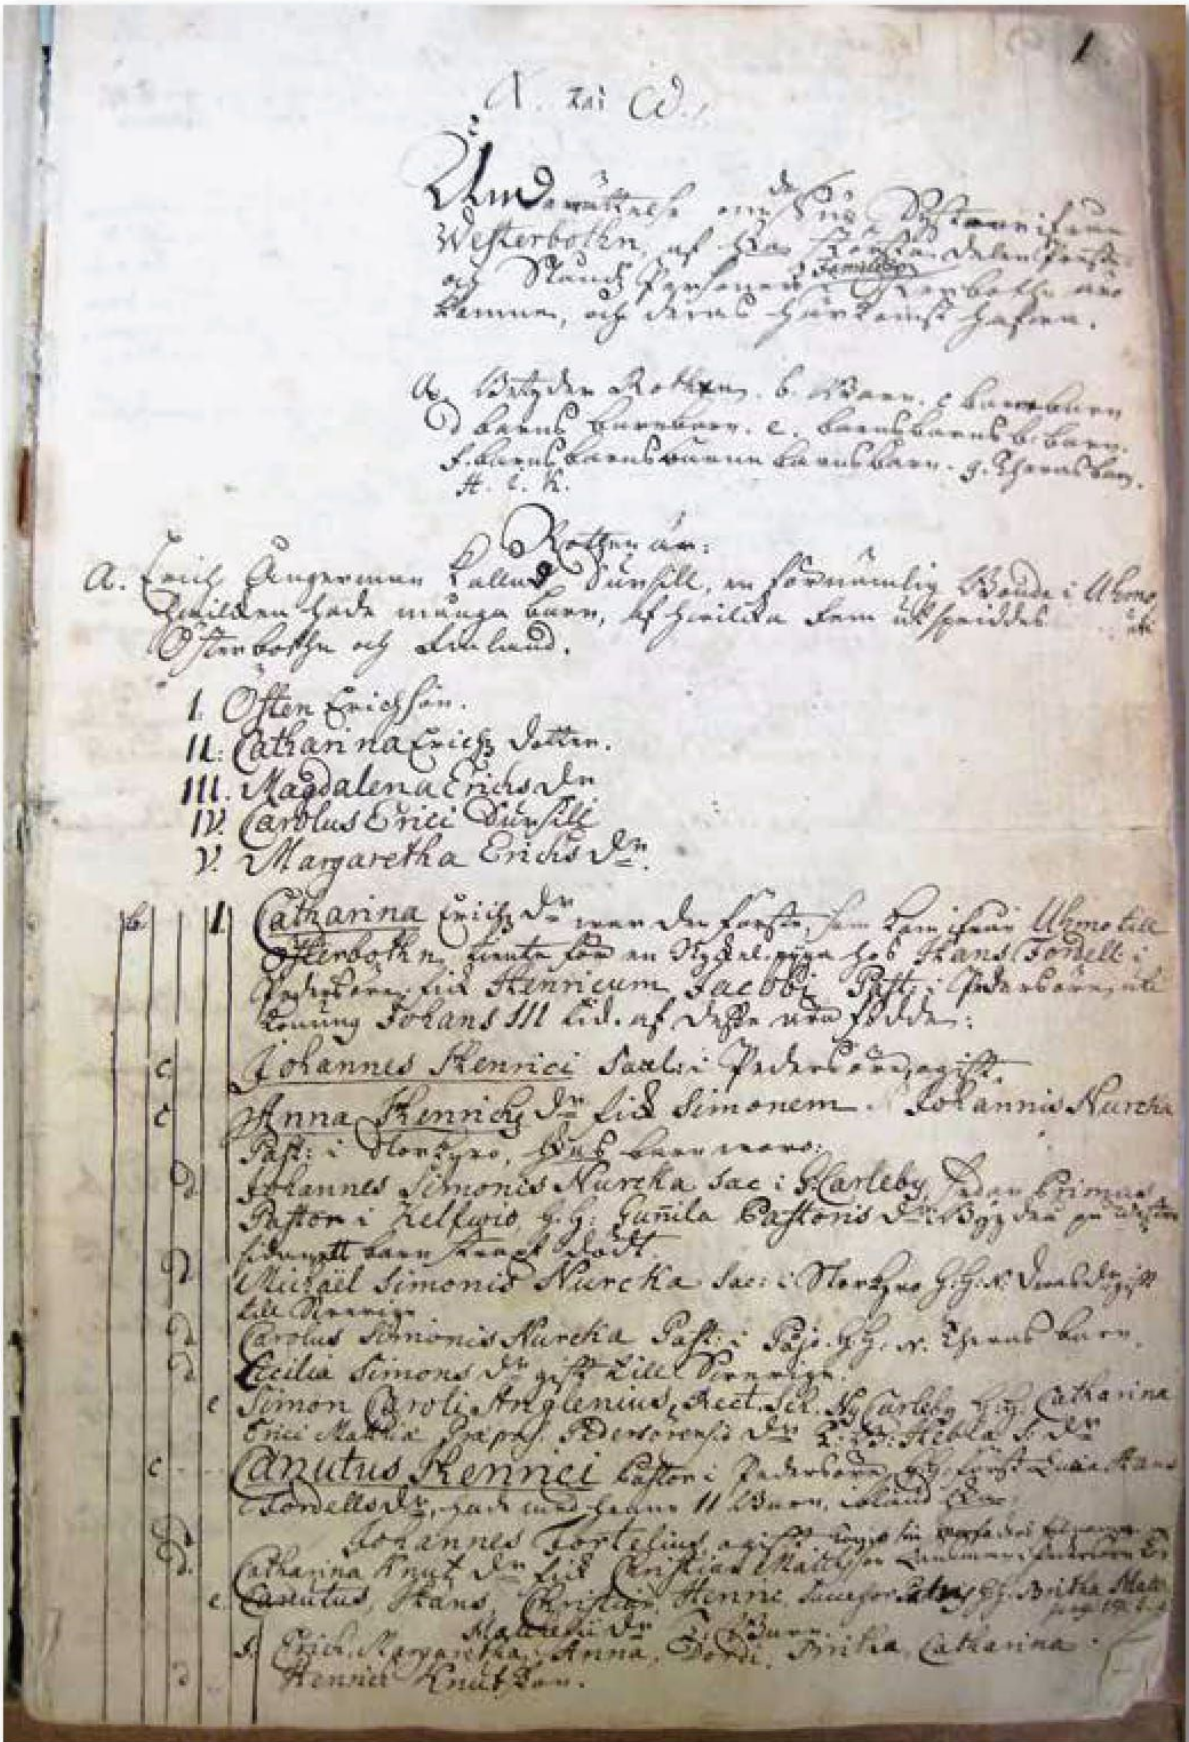 1
A. καὶ ω.
Underrättelse om de Sus Systrar ifrån
Westerbothn, af
och Stånds Personers Familier i Österbothn äro
komne, och deras härkomst hafva.
a. Betyder Rothen. b. Barn. c barnabarn
d barns barnbarn. e. barnsbarns b.barn.
f. barnsbarnsbarns barnsbarn. g. Theras barn.
H. I. K.
Rothen är:
A. Erich Ångerman kallad Sursill, en förnämlig Bonde i Uhmo,
hwilken hade många barn, af hwilka fem utspriddes uti
Österbothn och Finland.
I. Östen Erichsson.
II. Catharina Erichz dotter.
III. Magdalena Erichs dr
IV. Carolus Erici Sursill
V. Margaretha Erichs dr.
b. 1. Catharina Erichz dr war den första, som kom ifrån Uhmo till
Österbothn, tiente för en Nyckelpiga hos Hans Fordell i
Pedersöre, fick Henricum Jacobi Past: i Pedersöre, uti
Konung Johans III tid. af desse äro födde:
c. Johannes Henrici Sacell: i Pedersöre, ogift.
c Anna Henrichz dr fick Simonem Johannis Nurcka
Past: i Storkyro, barn woro:
d Johannes Simonis Nurcka Sac: i G:Carleby, sedan Primus
Pastor i Kelfwio, G.G: Gunila Pastoris dr i Bygdeå på wester
sidan, ett barn strax dödt.
d. Michaël Simonis Nurcka Sac: i Storkyro G.G: N. deras dr gift
till Swerige
d Carolus Simonis Nurcka Past: i Pojo. G.G. N. Theras barn.
d Cecilia Simons dr gift till Swerige.
e Simon Caroli Anglenius, Rect. Sch. Ny Carleby G.G. Catharina
Erici Matthiæ Præpos. Pedersörensis dr Hebla S. dr
c Canutus Henrici Pastor i Pedersöre, G.G. först Lucia Hans
Fordells dr, hade med henne 11 Barn, ibland
d Johannes Fortelius, ogift, tog sin morfaders
d. Catharina Knutz dr fick Christian Matts son Länsman i Pedersöre
e. Canutus, Hans, Christian, Henric, G.G. Britha Matt
Matthiæ dr Barn.
f. Erich, Margaretha, Anna, Dordi, Britha, Catharina.
d Henric Knutzson.